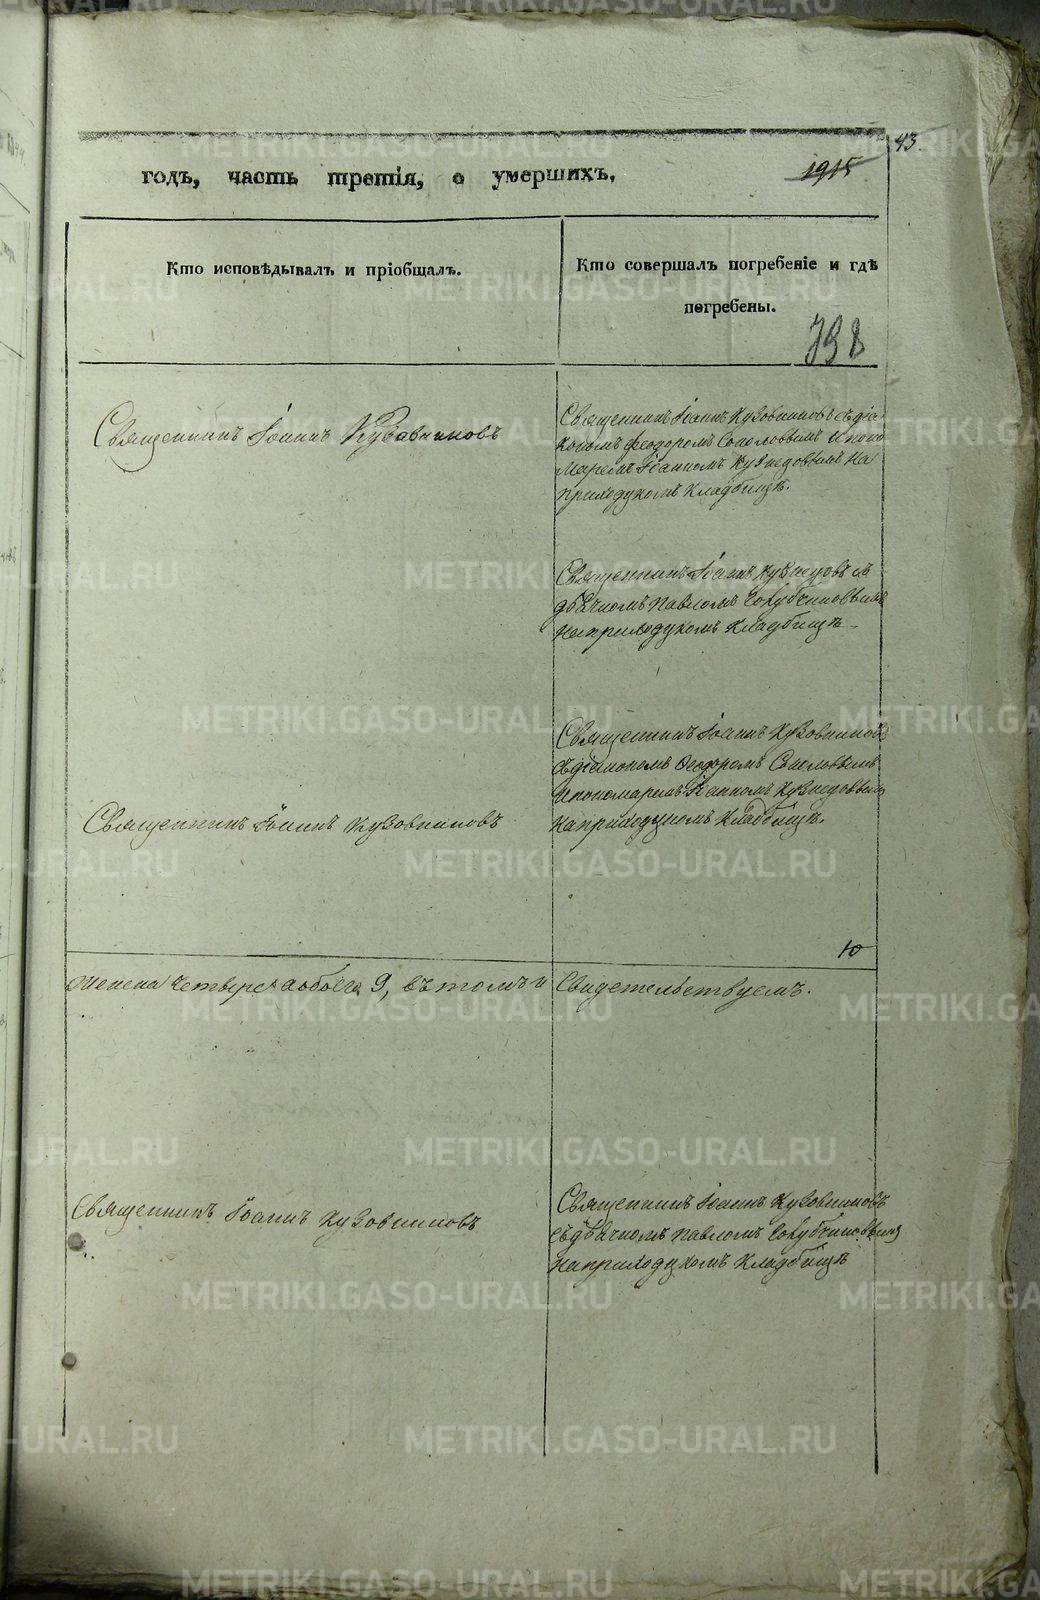 43
годъ, часть третія, о умершихъ.
1915
Кто исповѣдывалъ и пріобщалъ.
Кто совершалъ погребеніе и гдѣ
погребены.
798
Священникъ Іоаннъ Кузовниковъ
Священникъ Іоаннъ Кузовниковъ съ діа
кономъ Феодоромъ Соколовымъ и поно
маремъ Іоанномъ Кузнецовымъ на
приходскомъ кладбищѣ.
Священникъ Іоаннъ Кузнецовъ съ
дьячкомъ Павломъ Голубчиковымъ
на приходскомъ кладбищѣ
Священникъ Іоаннъ Кузовниковъ
съ діакономъ Феодоромъ Соколовымъ
и пономаремъ Іоанномъ Кузнецовымъ
на приходскомъ кладбищѣ.
Священникъ Іоаннъ Кузовниковъ
10
женска четыре а обоего 9, въ томъ и
Свидетельствуемъ.
Священникъ Іоаннъ Кузовниковъ
Священникъ Іоаннъ Кузовниковъ
съ дьячкомъ Павломъ Голубчиковымъ
на приходскомъ кладбищѣ
METRIKI.GASO-URAL.RU